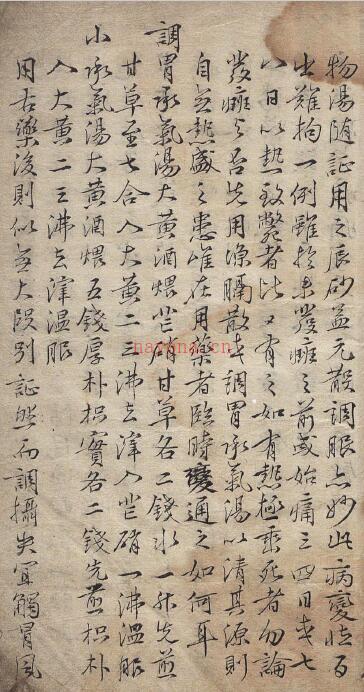 物湯随証用之辰砂益元散調服亦妙此病變恠百
出難拘一例雖於未發癍之前或始痛三四日或七
八日以熱致斃者比比有之如有熱極垂死者勿論
發癍與否先用凉膈散或調胃承氣湯以清其源則
自無熱盛之患唯在用藥者臨時變通之如何耳
調胃承氣湯大黃酒煨芒硝甘草各二錢水一升先煎
甘草至七合入大黃二三沸去滓入芒硝一沸溫服
小承氣湯大黃酒煨五錢厚朴枳實各二錢先煎枳朴
入大黃二三沸去滓溫服
用右藥後則似無大段別証然而調攝失宜觸冒風